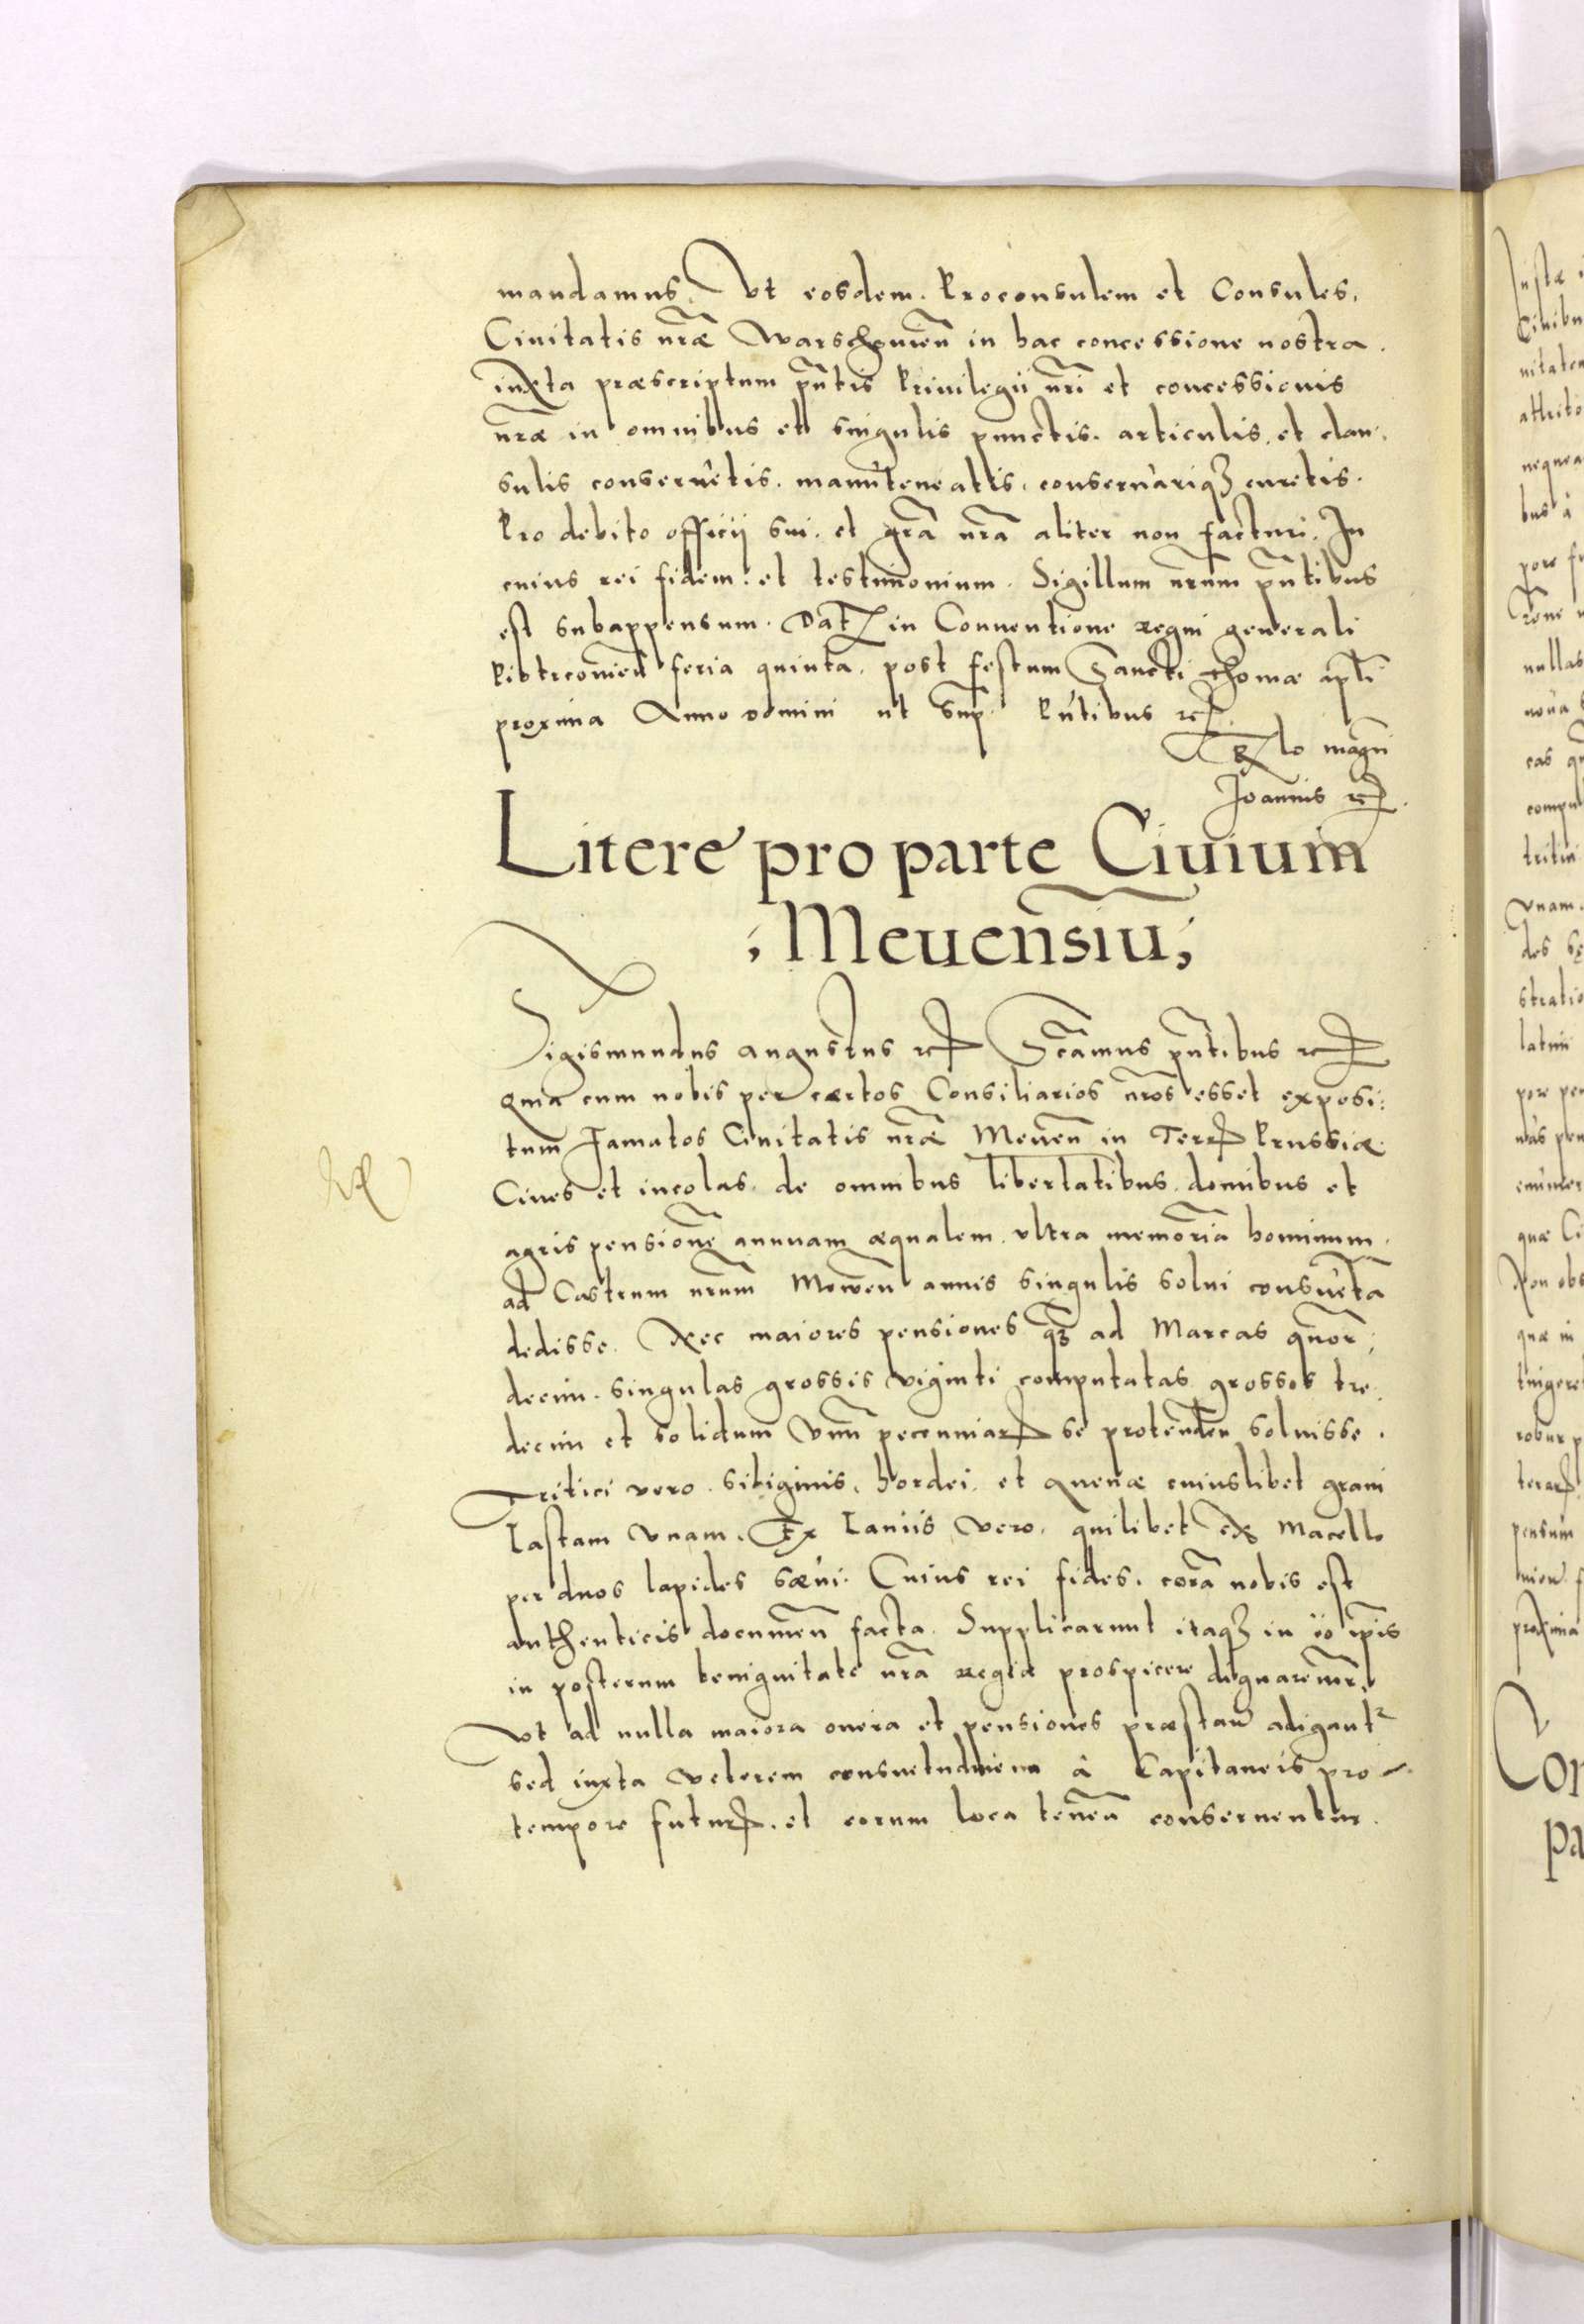 mandamus. Vt eosdem. Proconsulem et Consules,
Ciuitatis nr̃æ Warschouien̄ in hac concessione nostra.
iuxta præscriptum pn̄tis Priuilegii nr̃i et concessionis
nr̃æ in omnibus et singulis punctis. articulis. et clau-
sulis conseruetis. manuteneatis, conseruariqȝ curetis.
Pro debito officij sui. et gr̃a nr̃a aliter non facturi. In
cuius rei fidem: et testimonium. Sigillum nr̃um pn̄tibus
est subappensum. Dat in Conuentione regni generali
Piotrcouien̄ feria quinta. post festum Sancti Thomæ apl̃i
proxima Anno domini ut sup. Pn̄tibus etc.
Ex lo magn̄i
Joannis etc.
Litere pro parte Ciuium
Meuen̄siū,
Sigismundus augustus etc. Sc̃amus pn̄tibus etc.
Quia cum nobis per cærtos Consiliarios nr̃os esset exposi:
tum famatos Ciuitatis nr̃æ Meuen̄ in Terr Prussiæ.
Ciues et incolas. de omnibus libertatibus. domibus et
agris pensionē annuam æqualem. vltra memoriā hominum.
ad Castrum nr̃um Mewen̄ annis singulis solui consuetā
dedisse. Nec maiores pensiones qȝ ad Marcas quor̄,
decim. singulas grossis viginti computatas grossos tre
decim et solidum vnū pecuniar se protenden̄ soluisse.
Tritici vero. siliginis, hordei. et Auenæ cuiuslibet grani
Lastam vnam. Ex Laniis vero. quilibet ex Macello
per duos lapides sæui. Cuius rei fides. corā nobis est
authenticis documen̄ facta. Supplicarunt itaqȝ in iō ip̄is
in posterum benignitate nr̃a regia prospicere dignaremur.
Vt ad nulla maiora onera et pensiones præstan̄ adigantr
sed iuxta veterem consuetudinem à Capitaneis pro
tempore futur. et eorum loca tenen̄ conseruentur.